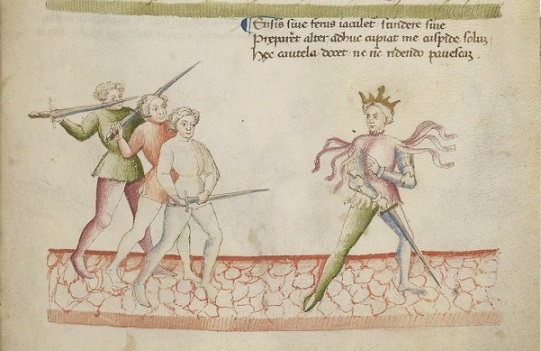 Ensis siue ferus iaculet scindere siue
Preparet alter adhuc cupiat me cuspide solū
hec cautela docet ne nc ridendo pauescaȝ.